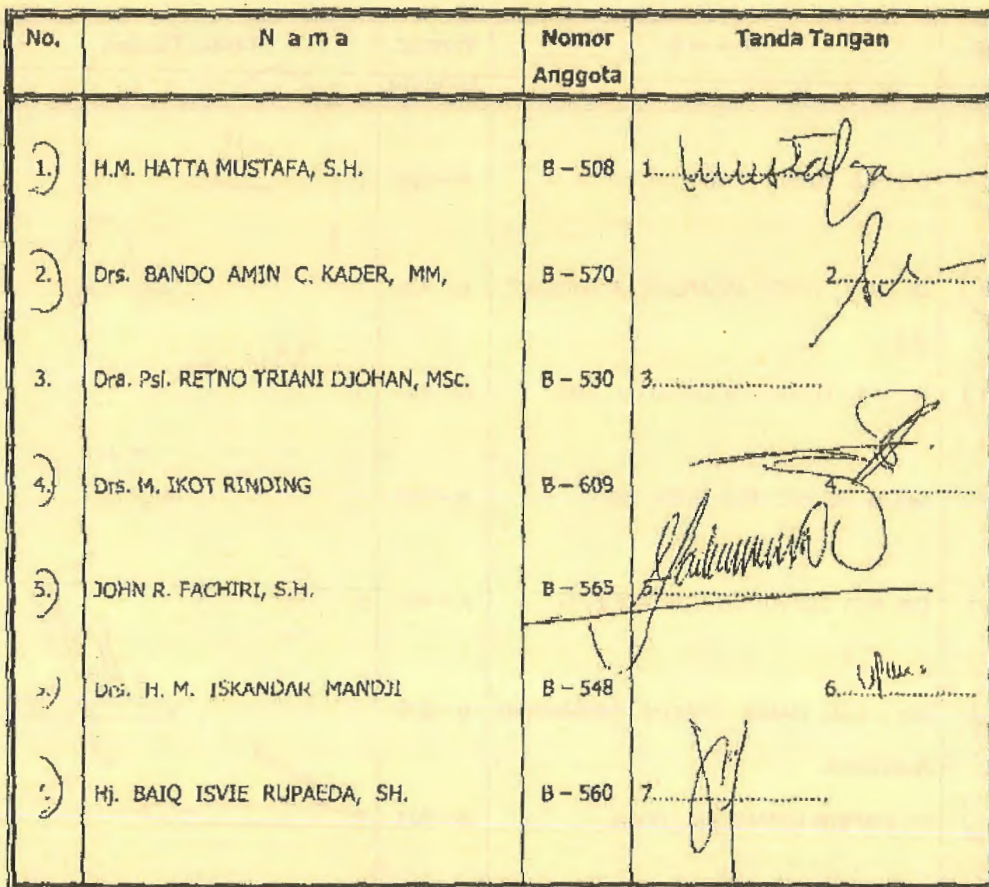 No. N a m a Nomor Anggota Tanda Tangan
1. H.M. HATTA MUSTAFA, S.H. B – 508 1. Mustafa
2. Drs. BANDO AMIN C. KADER, MM, B – 570 2.
3. Dra. Psi. RETNO TRIANI DJOHAN, MSc. B – 530 3.
4. Drs. M. IKOT RINDING B – 609 4.
5. JOHN R. FACHIRI, S.H. B – 565 5.
Drs. H. M. ISKANDAR MANDJI B – 548 6.
Hj. BAIQ ISVIE RUPAEDA, SH. B – 560 7.